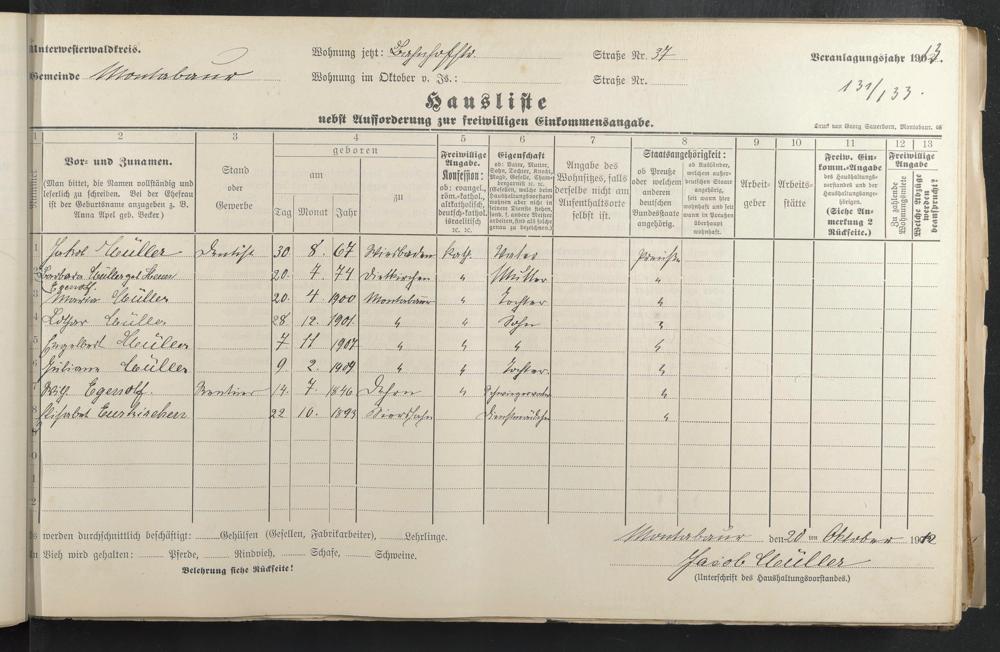 Unterwesterwaldkreis.
Wohnung jetzt: Bahnhofstr. Straße Nr. 37
Veranlagungsjahr 1913.
Gemeinde Montabaur
Wohnung im Oktober v. Js.: Straße Nr.
Hausliste
nebst Aufforderung zur freiwilligen Einkommensangabe.
Druck von Georg Sauerborn, Montabaur.
1 2 3 4 5 6 7 8 9 10 11 12 13
Nummer
Vor- und Zunamen.
(Man bittet, die Namen vollständig und
leserlich zu schreiben. Bei der Ehefrau
ist der Geburtsname anzugeben z. B.
Anna Apel geb. Becker.)
Stand
oder
Gewerbe
geboren
am
Tag Monat Jahr
zu
Freiwillige
Angabe.
Konfession:
ob: evangel.,
röm.-kathol.,
altkatholisch,
deutsch-kathol.
israelitisch
2c. 2c.
Eigenschaft
ob: Vater, Mutter,
Sohn, Tochter, Knecht,
Magd, Geselle,
Angabe des
Wohnsitzes, falls
derselbe nicht am
Aufenthaltsorte
selbst ist.
Staatsangehörigkeit:
ob Preuße
oder welchem
anderen
deutschen
Bundesstaate
angehörig.
ob Ausländer,
welchem außer-
deutschen Staate
angehörig,
seit wann hier
wohnhaft und seit
wann in Preußen
überhaupt
wohnhaft.
Arbeit-
geber
Arbeits-
stätte
Freiw. Ein-
komm.-Angabe
des Haushaltungs-
vorstandes und der
Haushaltungsange-
hörigen.
(Siehe An-
merkung 2
Rückseite.)
Freiwillige
Angabe
Zu zahlende
Wohnungsmiete
Welche Abzüge
werden
beansprucht?
1 Jakob Müller Dentist 30 8. 67 Wiesbaden kath. Vater Preuße
Barbara Müller geb.
Egenolf. 20. 4. 74 Dietkirchen " Mutter "
3 Maria Müller 20. 4 1900 Montabaur " Tochter "
4 Lothar Müller 28. 12. 1901. " " Sohn "
5 Engelbert Müller 7 11 1907 " " " "
6 Juliane Müller 9. 2. 1909 " " Tochter "
7 Egenolf. Rentner 14. 7. 1846 Dehrn " Schwiegervater "
8 Elisabet 22 10. 1893 Dienstmädchen "
Es werden durchschnittlich beschäftigt: Gehülfen (Gesellen, Fabrikarbeiter), Lehrlinge.
An Vieh wird gehalten: Pferde, Rindvieh, Schafe, Schweine.
Belehrung siehe Rückseite!
Montabaur den 20 ten Oktober 1912
Jacob Müller
(Unterschrift des Haushaltungsvorstandes.)